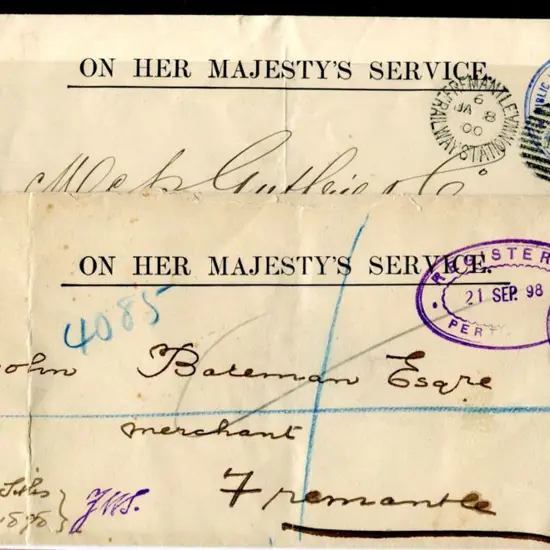 ON HER MAJESTY'S SERVICE.
FREMANTLE RAILWAY STATION W.A.
6
JA 8
00
PUBLIC
Guthrie & Co
ON HER MAJESTY'S SERVICE.
REGISTER
21 SEP. 98
PER
4085
John Bateman Esqre
merchant
Fremantle